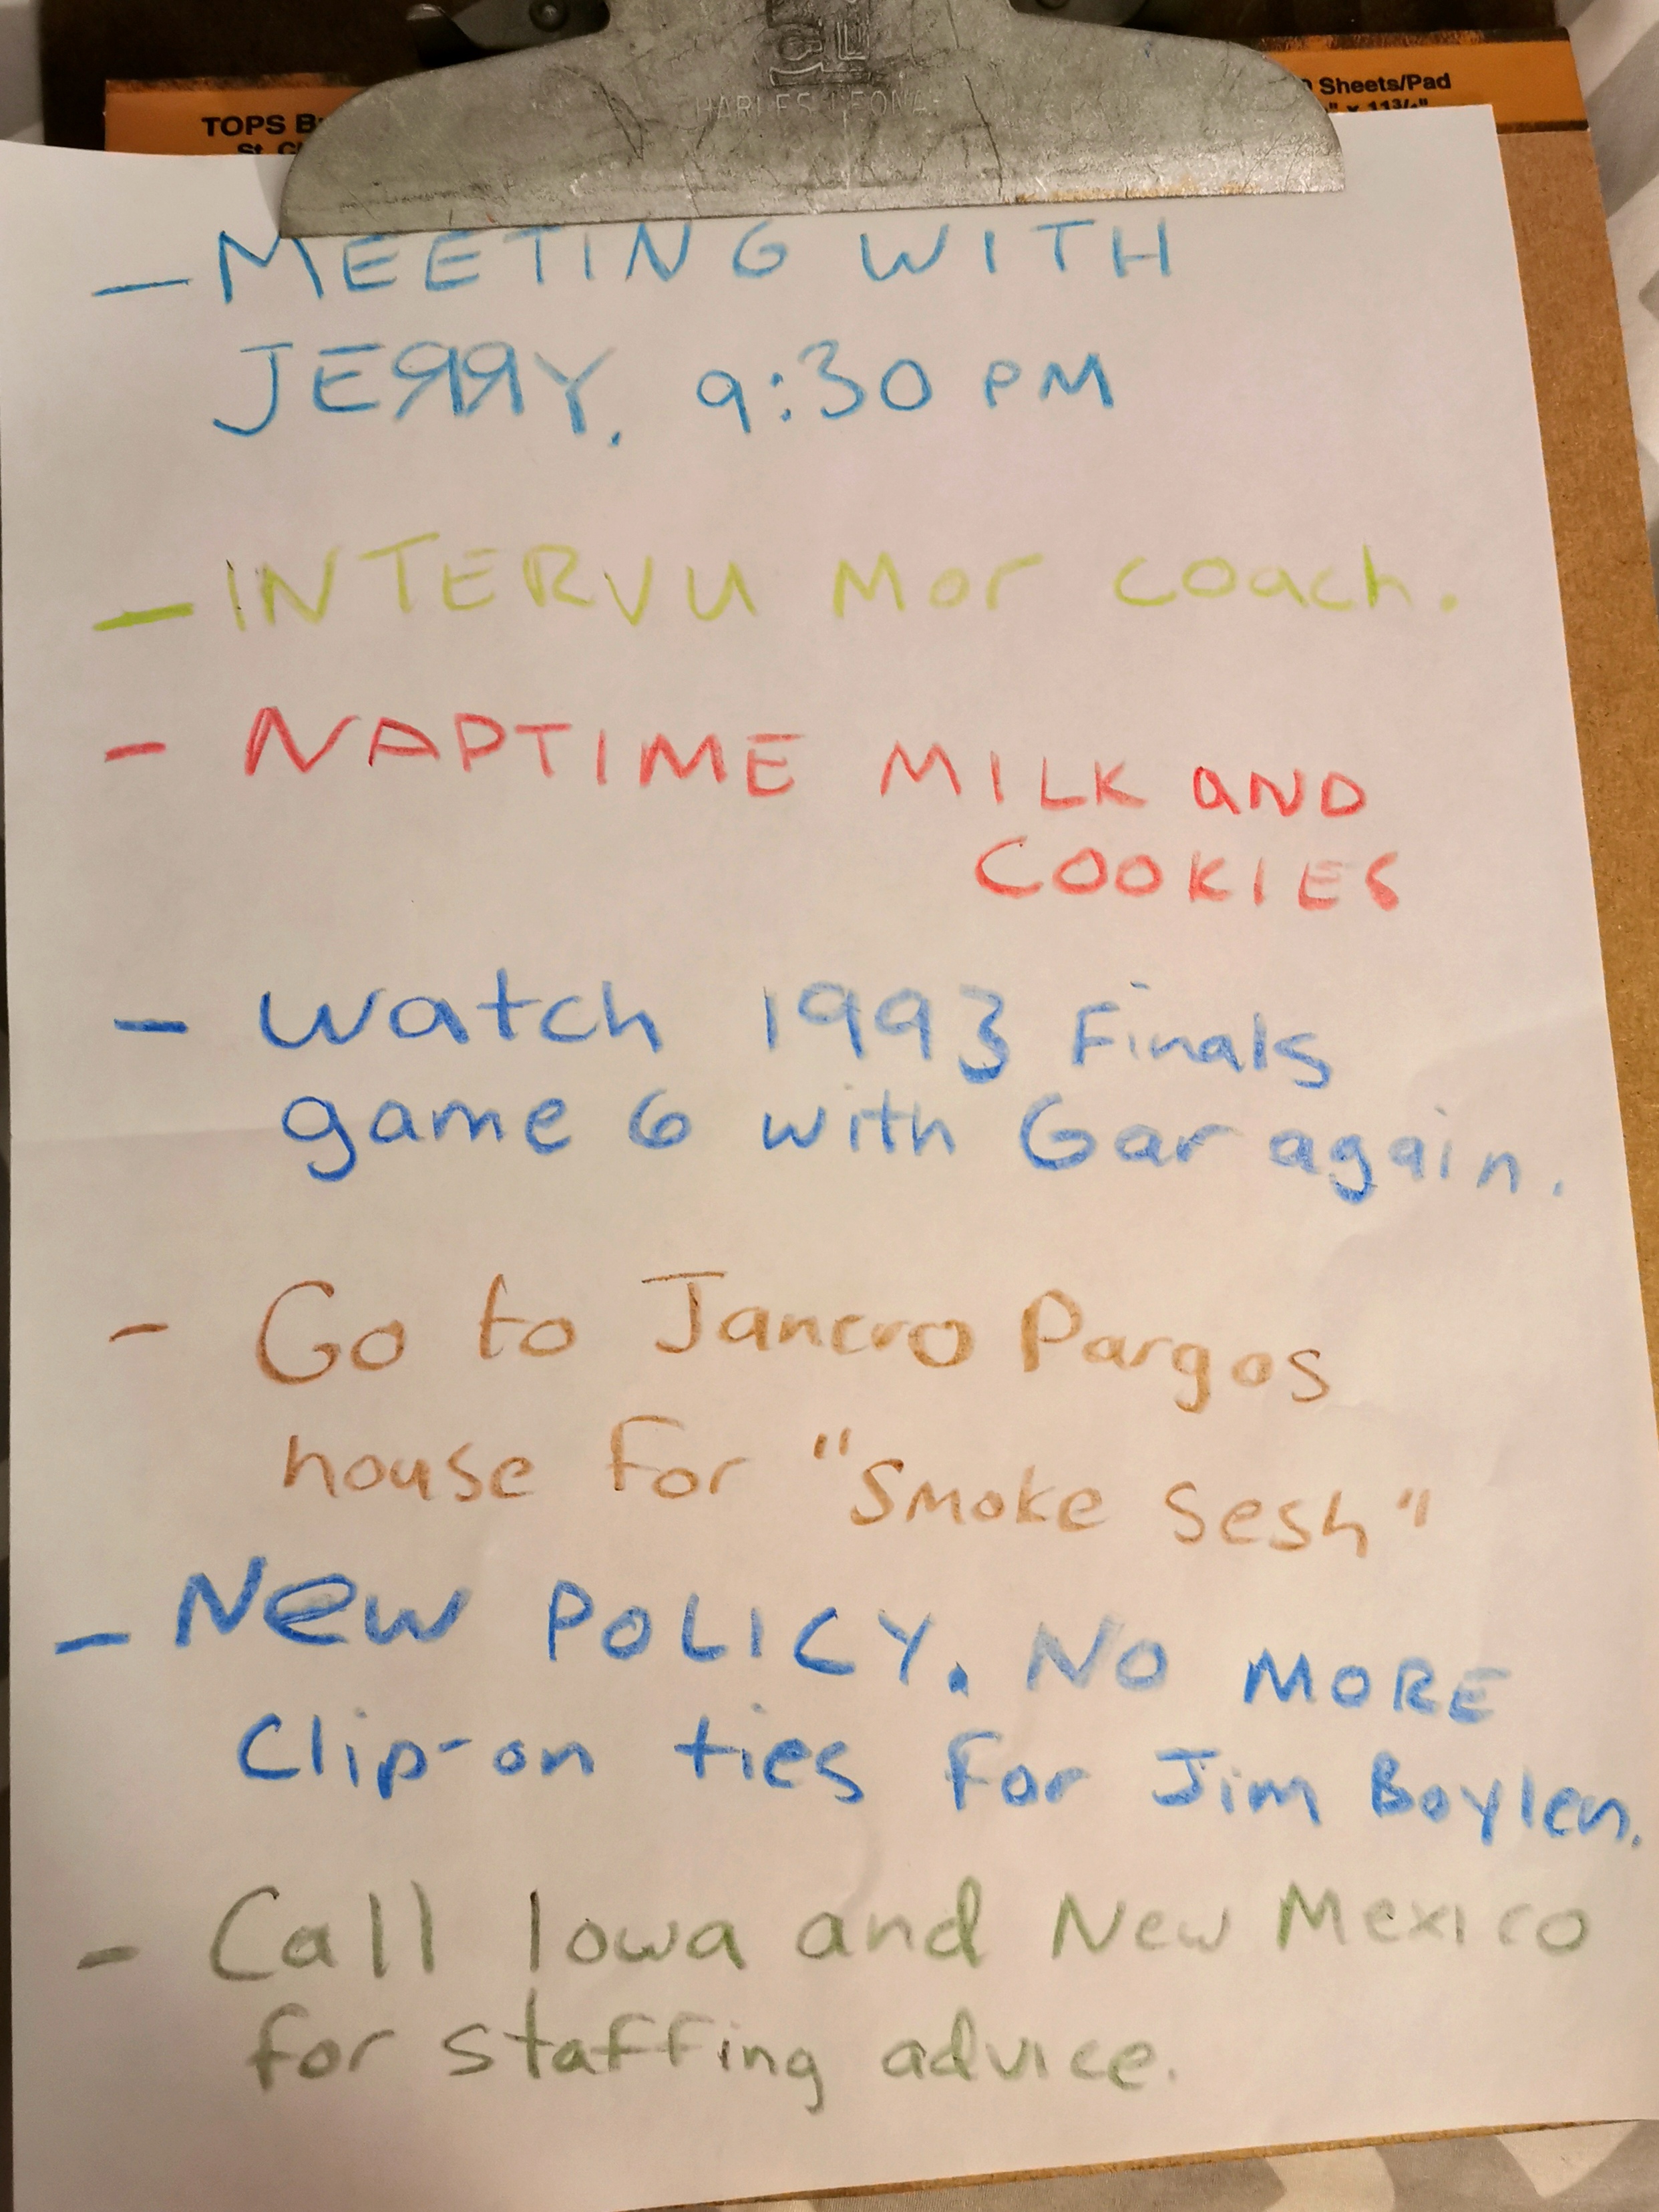 HARLES LEONA
TOPS B
Sheets/Pad
" x 11¾"
- MEETING WITH
JEЯЯY. 9:30 PM
- INTERVU Mor coach.
- NAPTIME MILK aND
COOKIES
- Watch 1993 Finals
game 6 with Gar again.
- Go to Janero Pargos
house For "Smoke Sesh"
- New POLICY. NO MORE
Clip-on ties For Jim Boylen.
- Call Iowa and New Mexico
for staffing advice.